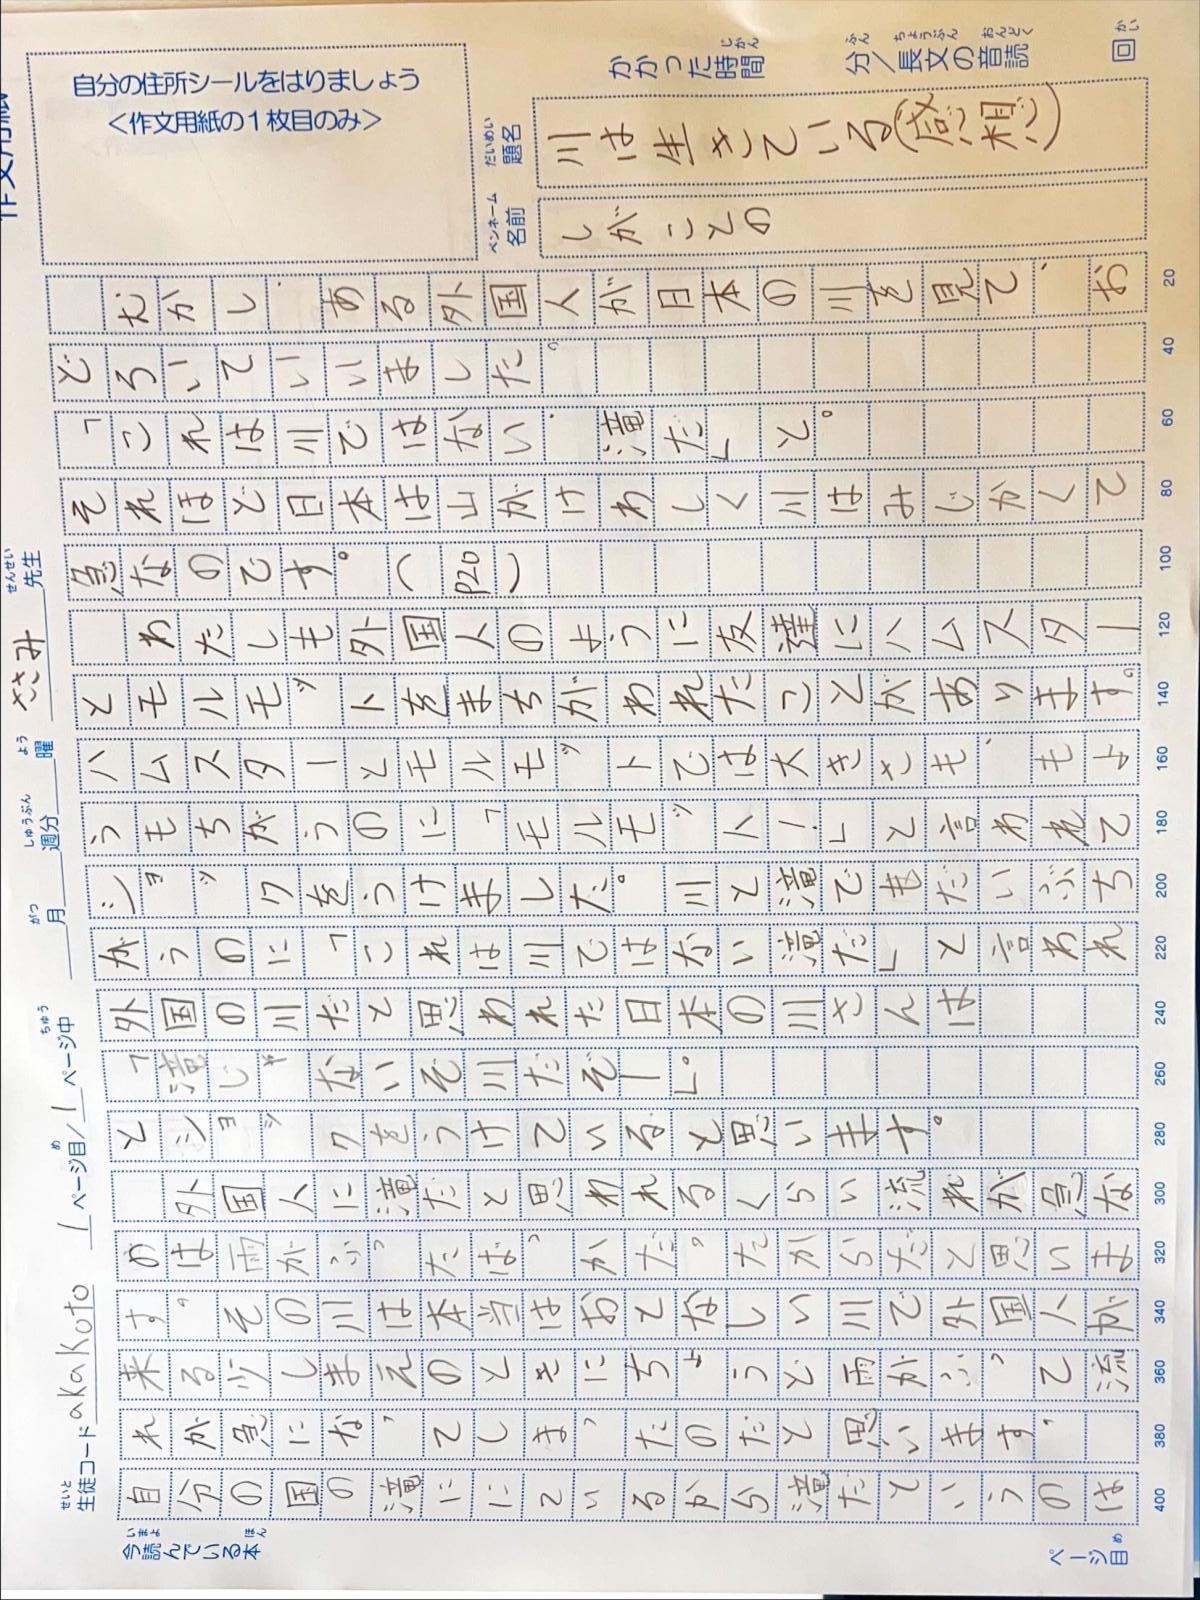 作文用紙
自分の住所シールをはりましょう
<作文用紙の1枚目のみ>
かかった時間 分/長文の音読 回
じかん ふん ちょうぶん おんどく かい
だいめい
題名
川は生きている(感想)
ペンネーム
名前
しがことの
せいと
生徒コード akakoto 1 ページ目/1 ページ中 月 週分 曜 ささみ 先生
め ちゅう がつ しゅうぶん よう せんせい
むかし、ある外国人が日本の川を見て、お
どろいていいました。
「これは川ではない、滝だ」と。
それほど日本は山がけわしく川はみじかくて
急なのです。(P20)
わたしも外国人のように友達にハムスター
とモルモットをまちがわれたことがあります。
ハムスターとモルモットでは大きさも、もよ
うもちがうのに「モルモット!」と言われて
ショックをうけました。川と滝でもだいぶち
がうのに「これは川ではない滝だ」と言われ
外国の川だと思われた日本の川さんは
「滝じゃないぞ川だぞー」。
とショックをうけていると思います。
外国人に滝だと思われるくらい流れが急な
のは雨がふったばっかだ。たからだと思いま
す。その川は本当はおとなしい川で外国人が
来る少しまえのときにちょうど雨がふって流
れが急になってしまったのだと思います。
自分の国の滝ににているから滝だというのは
20
40
60
80
100
120
140
160
180
200
220
240
260
280
300
320
340
360
380
400
いまよ ほん
今読んでいる本
ページ目
め